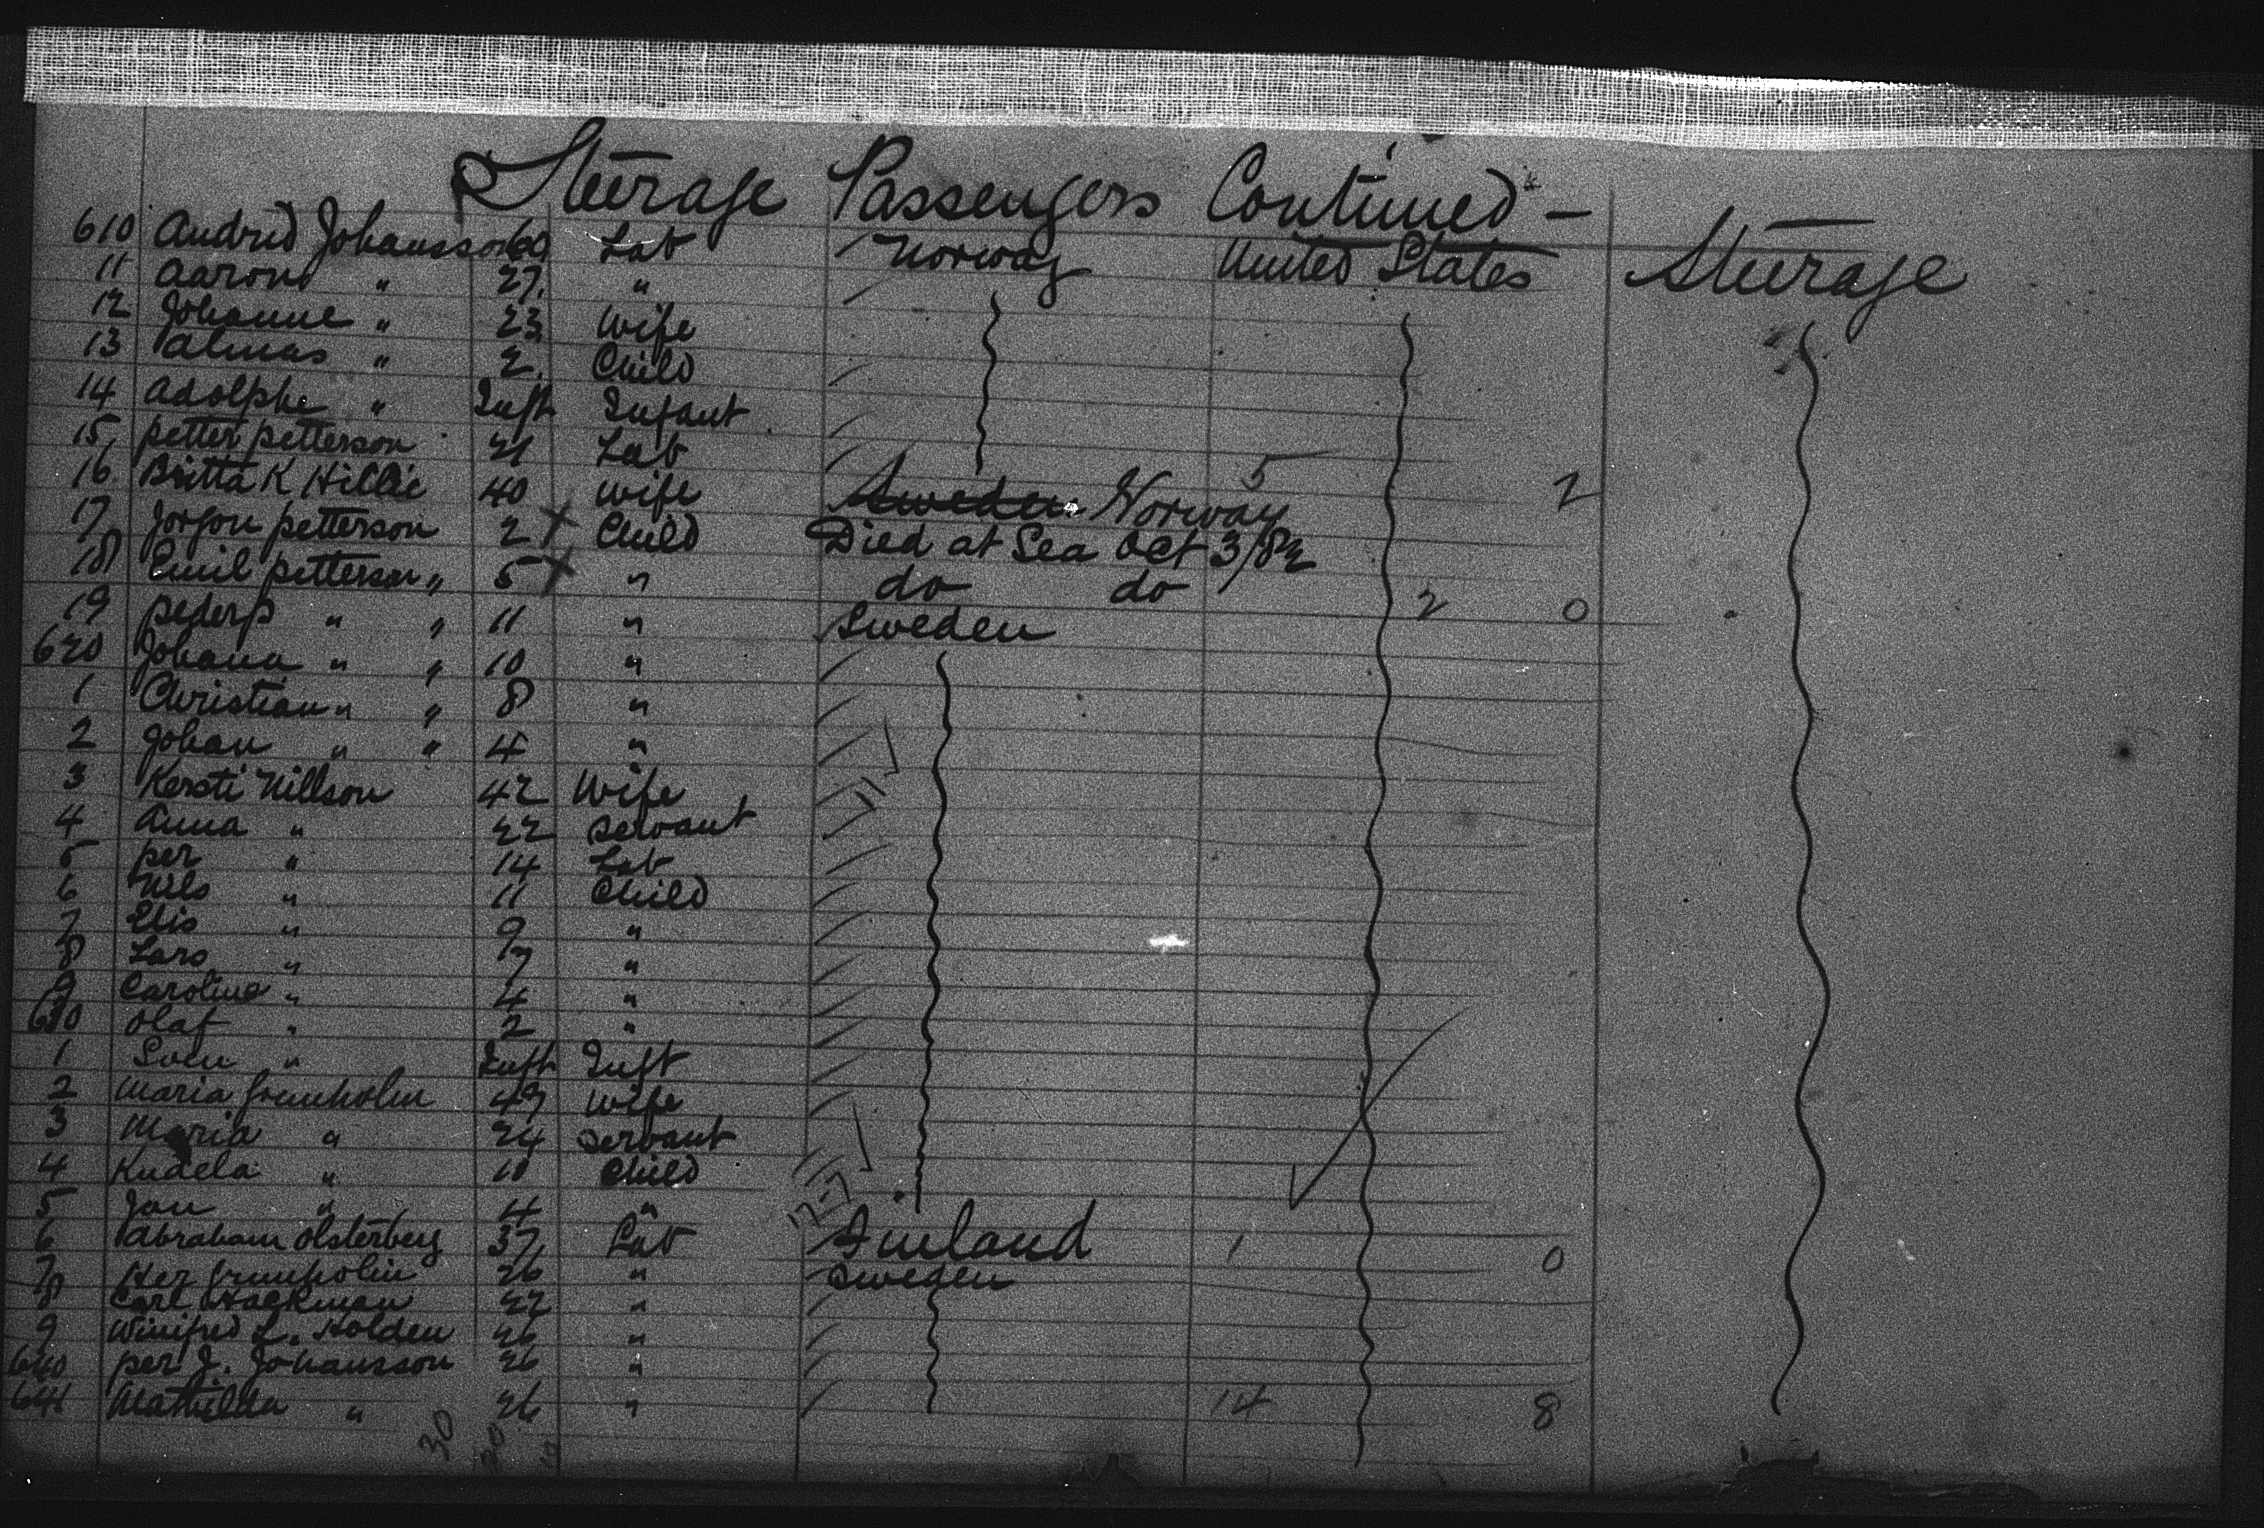 Steerage Passengers Continued —
610 Andrid Johansson 60 Lab Norway United States Steerage
11 Aaron " 27 "
12 Johanne " 23 Wife
13 Palmas " 2 Child
14 Adolphe " Inft Infant
15 Petter Petterson 21 Lab
16 Britta K Hillie 40 Wife Sweden Norway 5 2
17 Jorgon Petterson 2 X Child Died at Sea Oct 3/82
18 Emil Petterson " 5 X " do do
19 Peder P " " 11 " Sweden 2 0
620 Johana " " 10 "
1 Christian " " 8 "
2 Johan " " 4 "
3 Kersti Nillson 42 Wife
4 Anna " 22 Servant
5 Per " 14 Lab
6 Nils " 11 Child
7 Elis " 9 "
8 Lars " 7 "
9 Caroline " 4 "
630 Olaf " 2 "
1 Sven " Inft Inft
2 Maria 49 Wife
3 Maria " 24 Servant
4 " 10 Child
5 Jan " 4 "
6 Abraham Olsterberg 37 Lab Finland 1 0
7 26 " Sweden
8 Carl Hackman 22 "
9 Winifred L. Holden 26 "
640 Per J. Johansson 26 "
641 Mathilda " 26 " 14 8
30